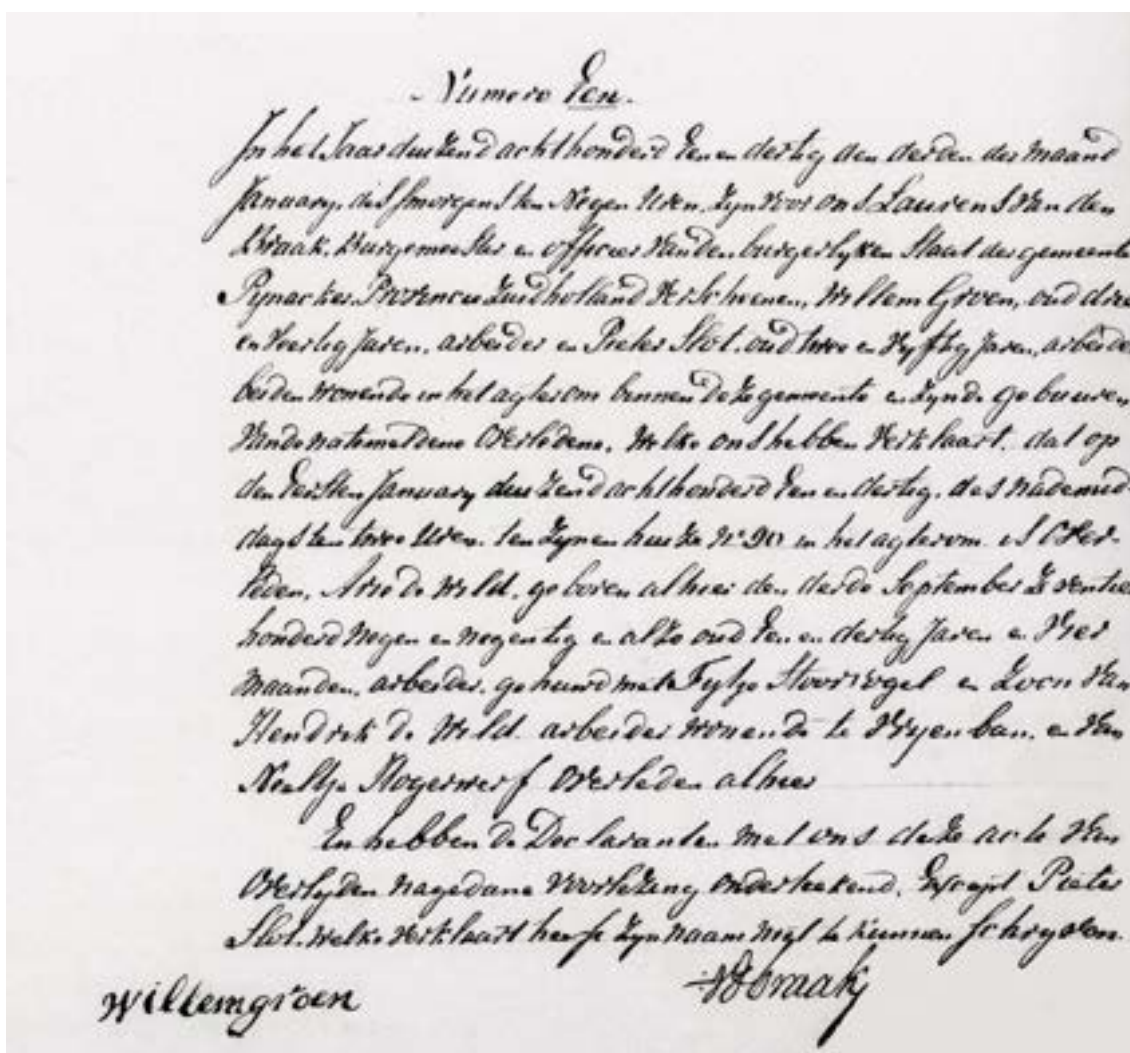 Numero Een.
In het Jaar duizend achthonderd Een en dertig den derden der maand
January, des smorgens ten Negen Uren, Zyn voor ons Laurens van den
Braak, Burgemeester en officier van den burgerlyken Staat der gemeente
Pynacker, Provencie Zuidholland Verschenen, Willem Groen, oud drie
en Veertig Jaren, arbeider en Pieter Slot, oud twee en Vyftig Jaren, arbeider
beiden wonende in het agterom binnen deze gemeente en Zynde gebuuren
van de natemeldene Overledene, Welke ons hebben Verklaart, dat op
den Eersten January duizend achthonderd Een en dertig, des Nademid-
dags ten twee Uren, ten Zynen huize N° 90 in het agterom is Over-
leden, Arie de Wild, geboren alhier den derde September Zeventien
honderd Negen en negentig en alzo oud Een en dertig Jaren en Vier
maanden, arbeider, gehuwd met Fytje Stoorvogel en Zoon van
Hendrik de Wild arbeider wonende te Vryenban, en van
Neeltje Hogerwerf Overleden alhier
En hebben de Declaranten met ons deze acte van
Overlyden nagedane Voorlezing Onderteekend, Exsept Pieter
Slot, welke Verklaart heeft Zyn naam niet te kunnen schryven.
Willem groen
VdBraak